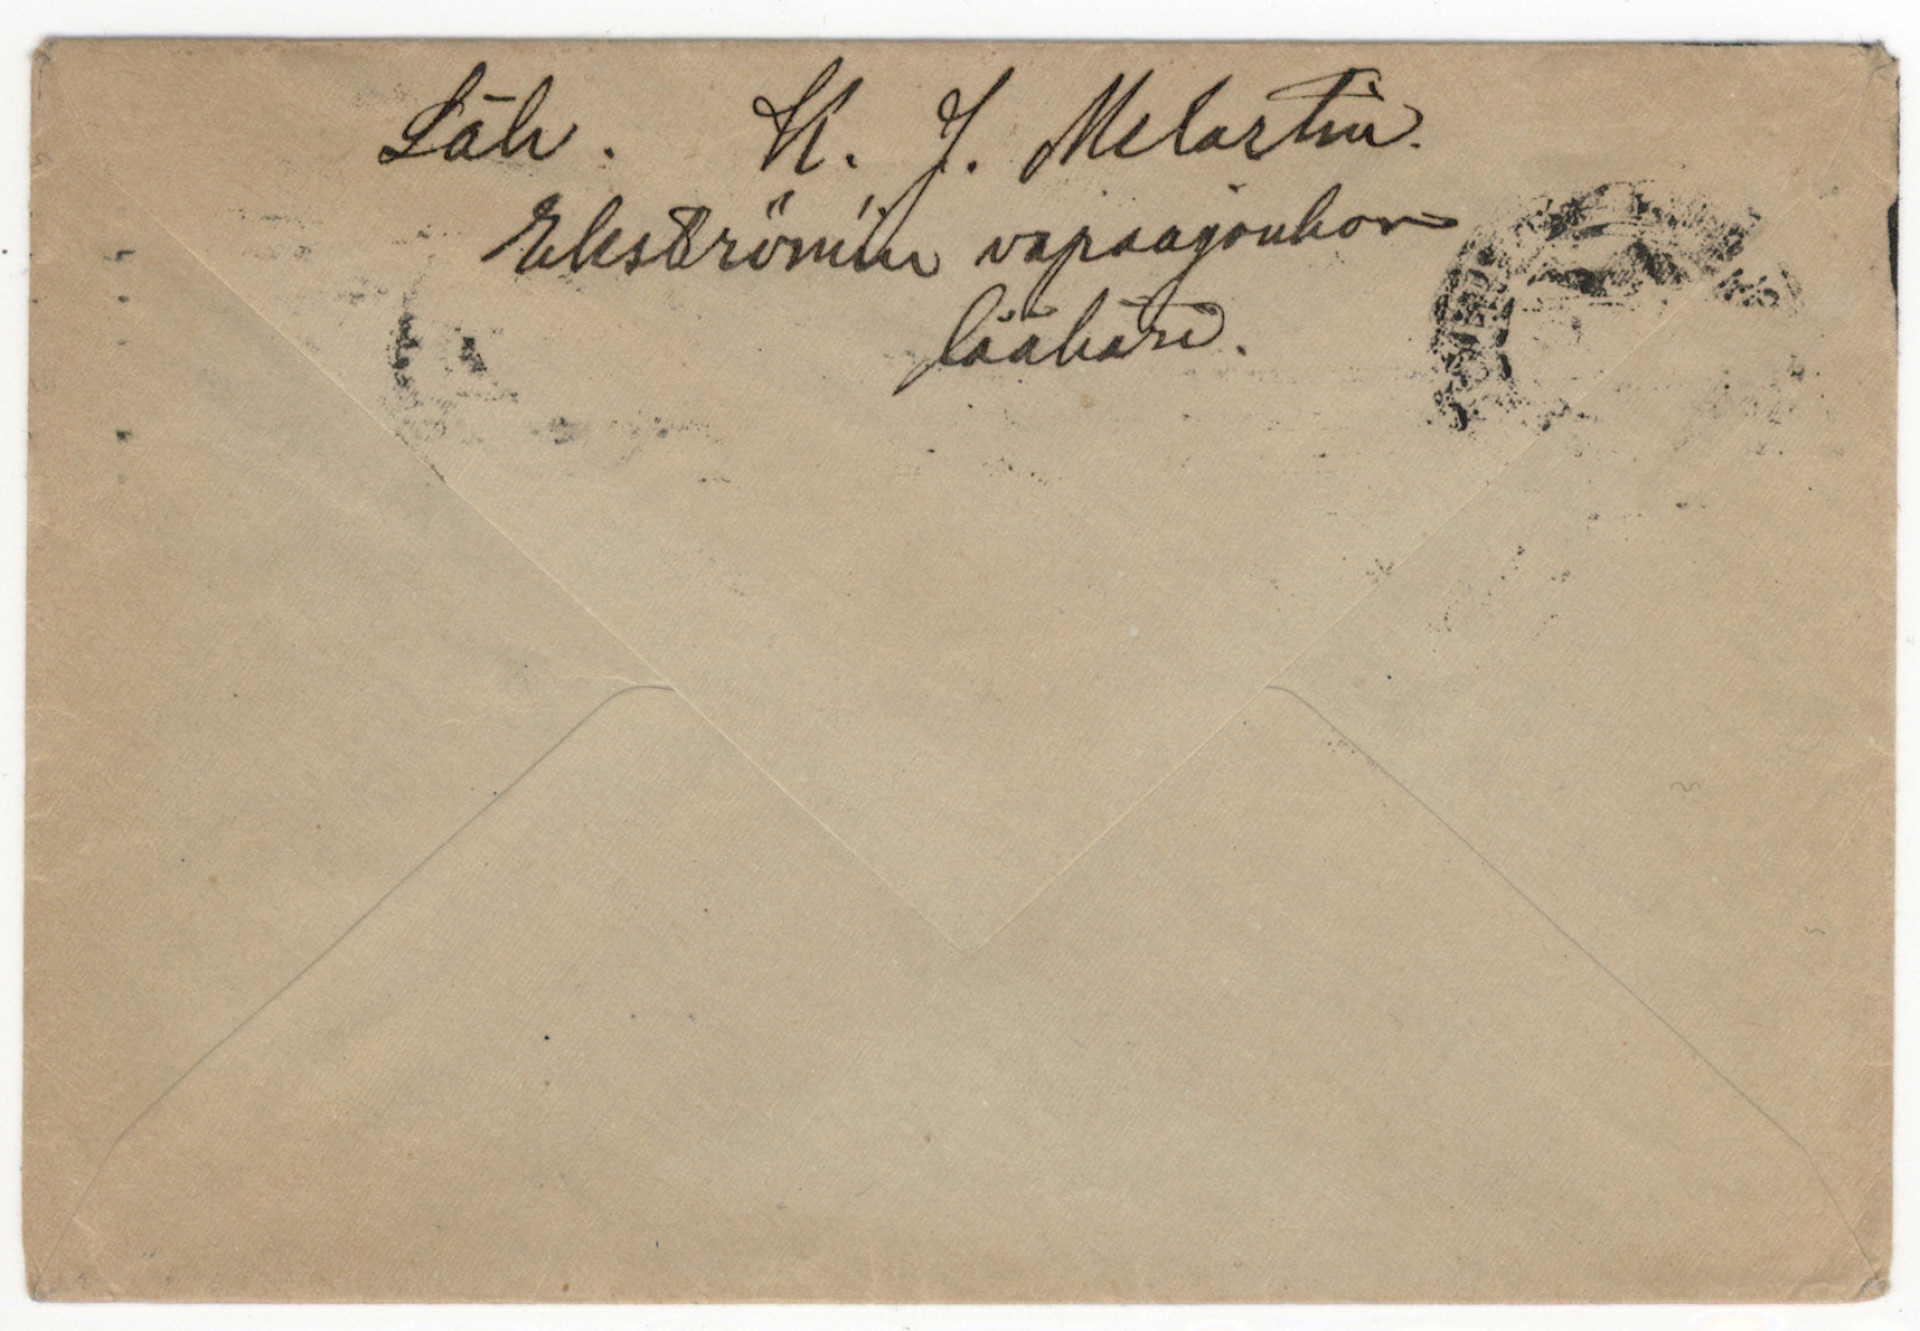 Läh. K. J. Melartin.
Ekström'in vapaajoukon
lääkäri.